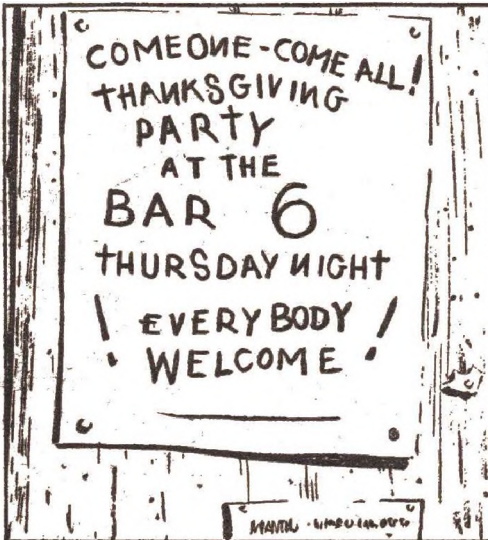 COME ONE - COME ALL!
THANKSGIVING
PARTY
AT THE
BAR 6
THURSDAY NIGHT
! EVERYBODY !
WELCOME